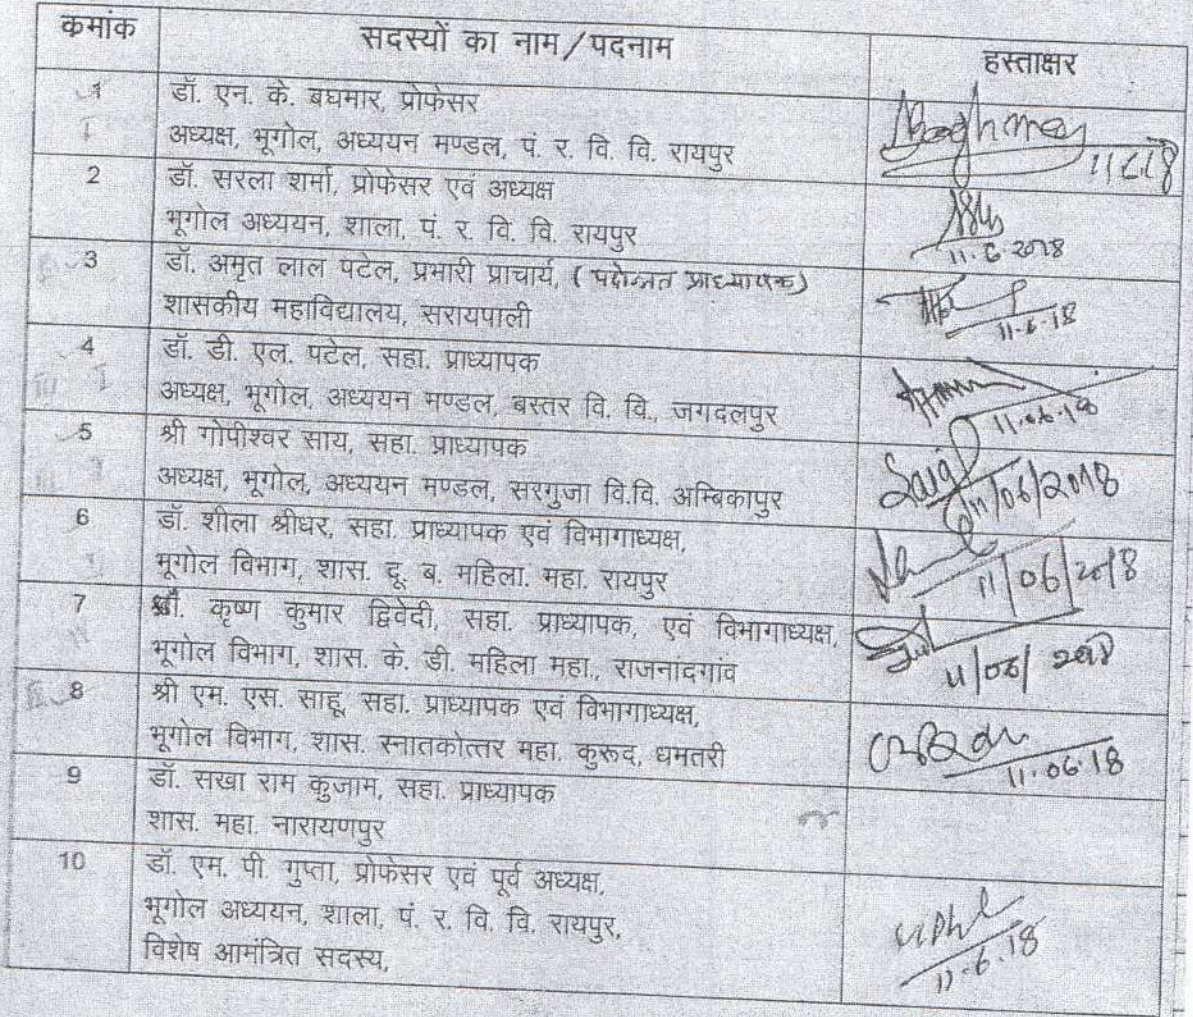 कमांक सदस्यों का नाम/पदनाम हस्ताक्षर
1 डॉ. एन. के. बघमार, प्रोफेसर
अध्यक्ष, भूगोल, अध्ययन मण्डल, पं. र. वि. वि. रायपुर
11.6.18
2 डॉ. सरला शर्मा, प्रोफेसर एवं अध्यक्ष
भूगोल अध्ययन, शाला, पं. र. वि. वि. रायपुर
11.6.2018
3 डॉ. अमृत लाल पटेल, प्रभारी प्राचार्य, (पदोन्नत प्राध्यापक)
शासकीय महाविद्यालय, सरायपाली
11.6.18
4 डॉ. डी. एल. पटेल, सहा. प्राध्यापक
अध्यक्ष, भूगोल, अध्ययन मण्डल, बस्तर वि. वि., जगदलपुर
11.06.18
5 श्री गोपीश्वर साय, सहा. प्राध्यापक
अध्यक्ष, भूगोल, अध्ययन मण्डल, सरगुजा वि.वि. अम्बिकापुर
11/06/2018
6 डॉ. शीला श्रीधर, सहा. प्राध्यापक एवं विभागाध्यक्ष,
भूगोल विभाग, शास. दू. ब. महिला. महा. रायपुर
11/06/2018
7 डॉ. कृष्ण कुमार द्विवेदी, सहा. प्राध्यापक, एवं विभागाध्यक्ष,
भूगोल विभाग, शास. के. डी. महिला महा., राजनांदगांव
11/06/2018
8 श्री एम. एस. साहू, सहा. प्राध्यापक एवं विभागाध्यक्ष,
भूगोल विभाग, शास. स्नातकोत्तर महा. कुरूद, धमतरी
11.06.18
9 डॉ. सखा राम कुजाम, सहा. प्राध्यापक
शास. महा. नारायणपुर
10 डॉ. एम. पी. गुप्ता, प्रोफेसर एवं पूर्व अध्यक्ष,
भूगोल अध्ययन, शाला, पं. र. वि. वि. रायपुर,
विशेष आमंत्रित सदस्य,
11.6.18